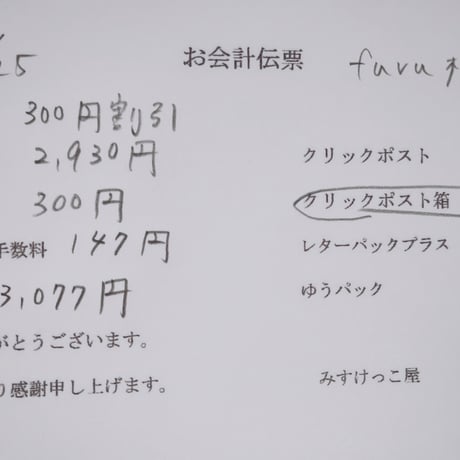 25 お会計伝票 furu
300円割引
2,930円 クリックポスト
300円 クリックポスト箱
手数料 147円 レターパックプラス
3,077円 ゆうパック
がとうございます。
り感謝申し上げます。 みすけっこ屋